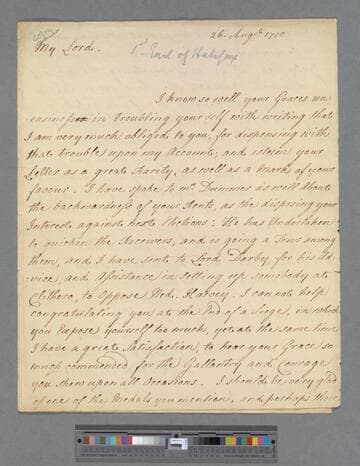 Copy
26. Augst. 1710
My Lord.
1st Earl of Halifax
I know so well your Graces un
easiness in troubling your self with writing that
I am very much obliged to you, for dispensing with
that trouble upon my Account; and esteem your
Letter as a great Rarity, as well as a Mark of your
favour. I have spoke to Mr. Dummer as well about
the backwardness of your Rents, as the disposing your
Interest against next Elections: He has Undertaken
to quicken the Receivers, and is going a Tour among
them, and I have sent to Lord Darby, for his Ad
vice, and Assistance in setting up somebody at
Clithero, to Oppose Ned. Harvey. I cannot help
congratulating you at the End of a Siege, in which
you Expose yourself too much, yet at the same time
I have a great Satisfaction, to hear your Grace so
much commended, for the Gallantry and Courage
you shew upon all Occasions. I should be very glad
of one of the Medals you mention, and perhaps there